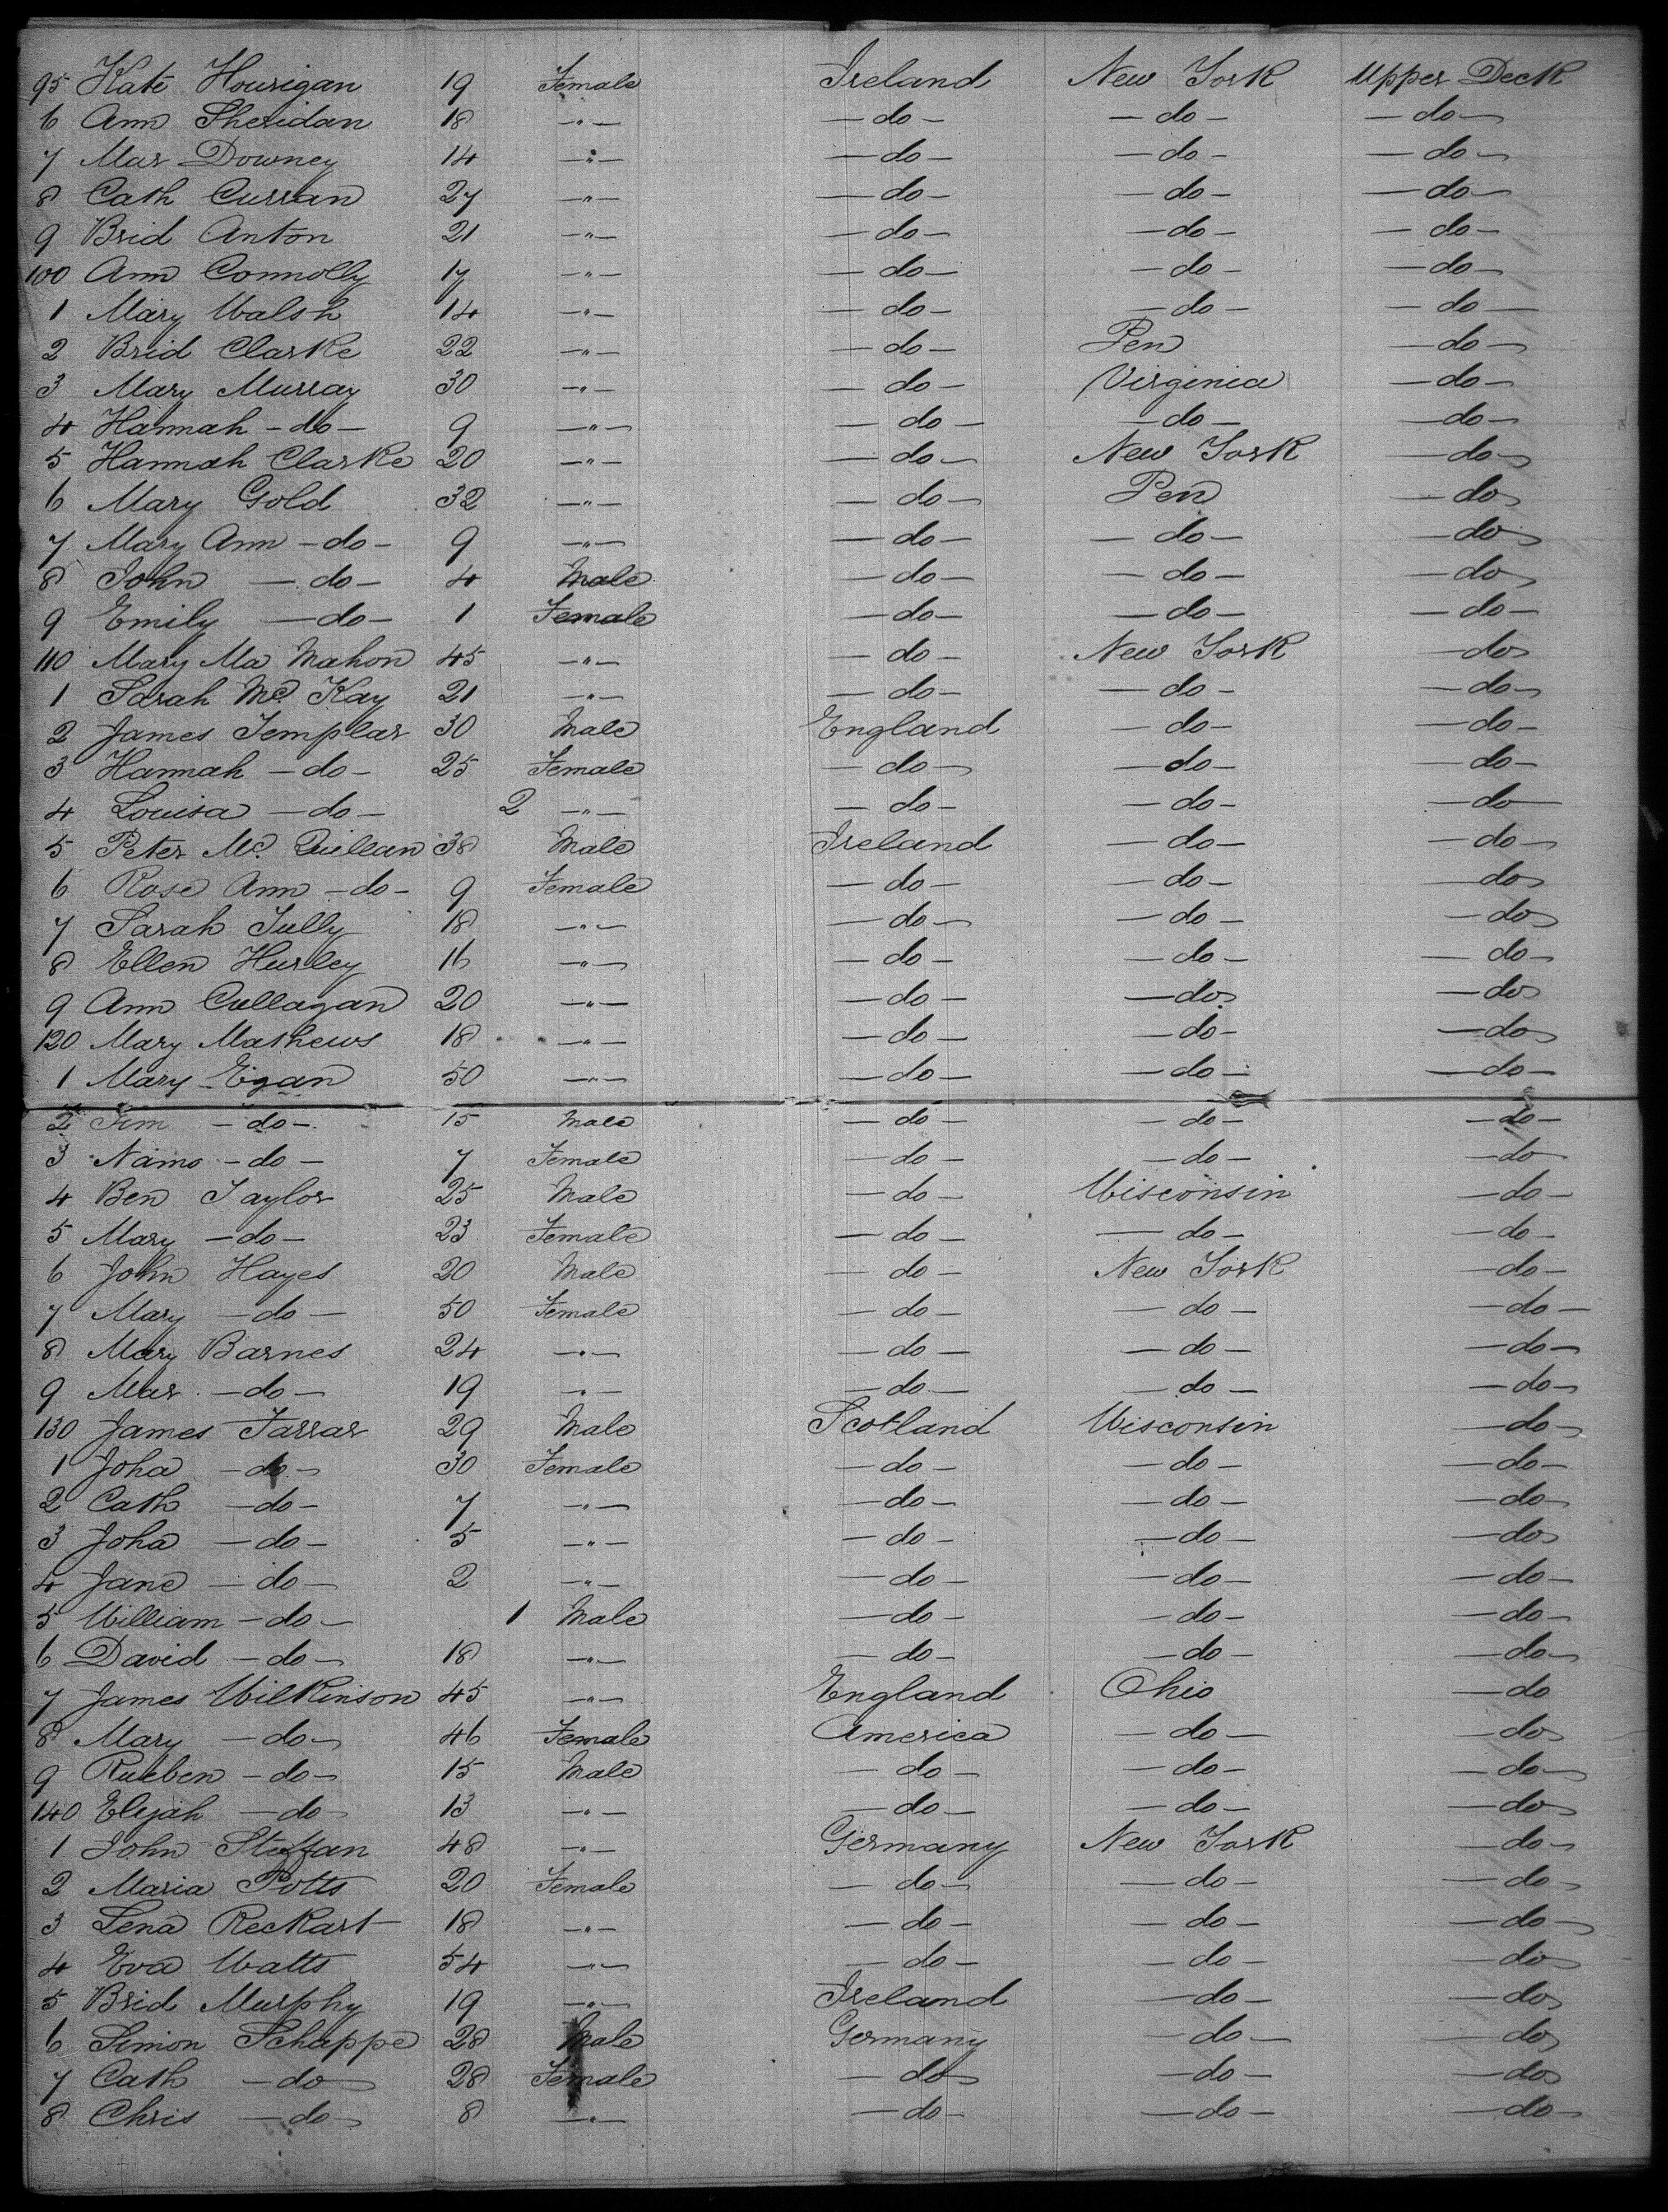 95 Kate Hourigan 19 Female Ireland New York Upper Deck
6 Ann Sheridan 18 —"— —do— —do— —do—
7 Mar Downey 14 —"— —do— —do— —do—
8 Cath Curran 27 —"— —do— —do— —do—
9 Brid Anton 21 —"— —do— —do— —do—
100 Ann Connolly 17 —"— —do— —do— —do—
1 Mary Walsh 14 —"— —do— —do— —do—
2 Brid Clarke 22 —"— —do— Pen —do—
3 Mary Murray 30 —"— —do— Virginia —do—
4 Hannah —do— 9 —"— —do— —do— —do—
5 Hannah Clarke 20 —"— —do— New York —do—
6 Mary Gold 32 —"— —do— Pen —do—
7 Mary Ann —do— 9 —"— —do— —do— —do—
8 John —do— 4 Male —do— —do— —do—
9 Emily —do— 1 Female —do— —do— —do—
110 Mary Ma Mahon 45 —"— —do— New York —do—
1 Sarah Mc. Kay 21 —"— —do— —do— —do—
2 James Templar 30 Male England —do— —do—
3 Hannah —do— 25 Female —do— —do— —do—
4 Louisa —do— 2 —"— —do— —do— —do—
5 Peter Mc. Quillan 38 Male Ireland —do— —do—
6 Rose Ann —do— 9 Female —do— —do— —do—
7 Sarah Tully 18 —"— —do— —do— —do—
8 Ellen Hurley 16 —"— —do— —do— —do—
9 Ann Cullagan 20 —"— —do— —do— —do—
120 Mary Mathews 18 —"— —do— —do— —do—
1 Mary Egan 50 —"— —do— —do— —do—
2 Tim —do— 15 Male —do— —do— —do—
3 Namo —do— 7 Female —do— —do— —do—
4 Ben Taylor 25 Male —do— Wisconsin —do—
5 Mary —do— 23 Female —do— —do— —do—
6 John Hayes 20 Male —do— New York —do—
7 Mary —do— 50 Female —do— —do— —do—
8 Mary Barnes 24 —"— —do— —do— —do—
9 Mar. —do— 19 —"— —do— —do— —do—
130 James Farrar 29 Male Scotland Wisconsin —do—
1 Joha —do— 30 Female —do— —do— —do—
2 Cath —do— 7 —"— —do— —do— —do—
3 Joha —do— 5 —"— —do— —do— —do—
4 Jane —do— 2 —"— —do— —do— —do—
5 William —do— 1 Male —do— —do— —do—
6 David —do— 18 —"— —do— —do— —do—
7 James Wilkinson 45 —"— England Ohio —do
8 Mary —do— 46 Female America —do— —do—
9 Rueben —do— 15 Male —do— —do— —do—
140 Elijah —do— 13 —"— —do— —do— —do—
1 John Steffan 48 —"— Germany New York —do—
2 Maria Potts 20 Female —do— —do— —do—
3 Lena Reckart 18 —"— —do— —do— —do—
4 Eva Watts 54 —"— —do— —do— —do—
5 Brid Murphy 19 —"— Ireland —do— —do—
6 Simon Schappe 28 Male Germany —do— —do—
7 Cath —do— 28 Female —do— —do— —do—
8 Chris —do— 8 —"— —do— —do— —do—